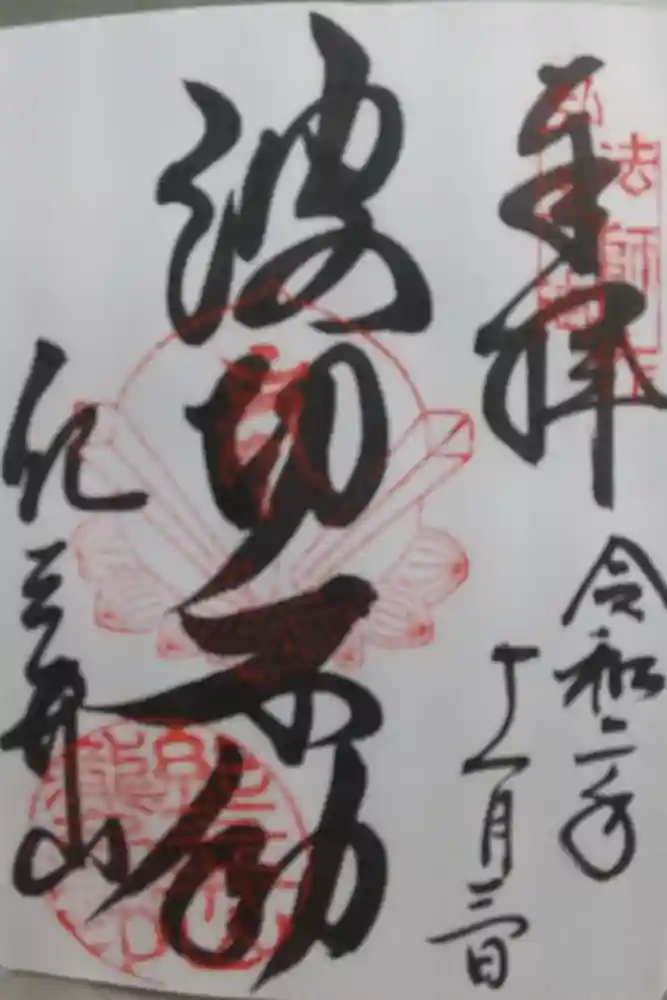 奉拝
令和二年
十一月三日
波切不動
紀三井山